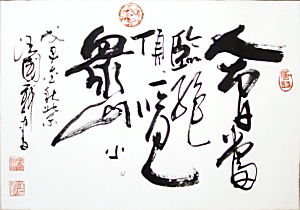 會當
臨絕
頂一覽
眾山小
戊子金秋北京
汪國新書